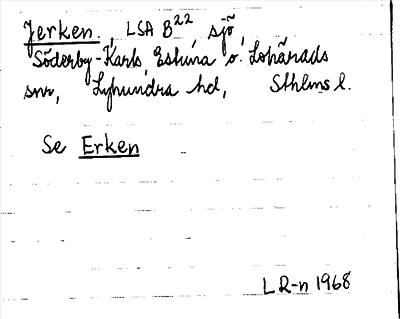 Jerken, LSA B²², sjö,
Söderby-Karls, Estuna o. Lohärads
snr, Lyhundra hd, Sthlms l.
Se Erken
L R-n 1968